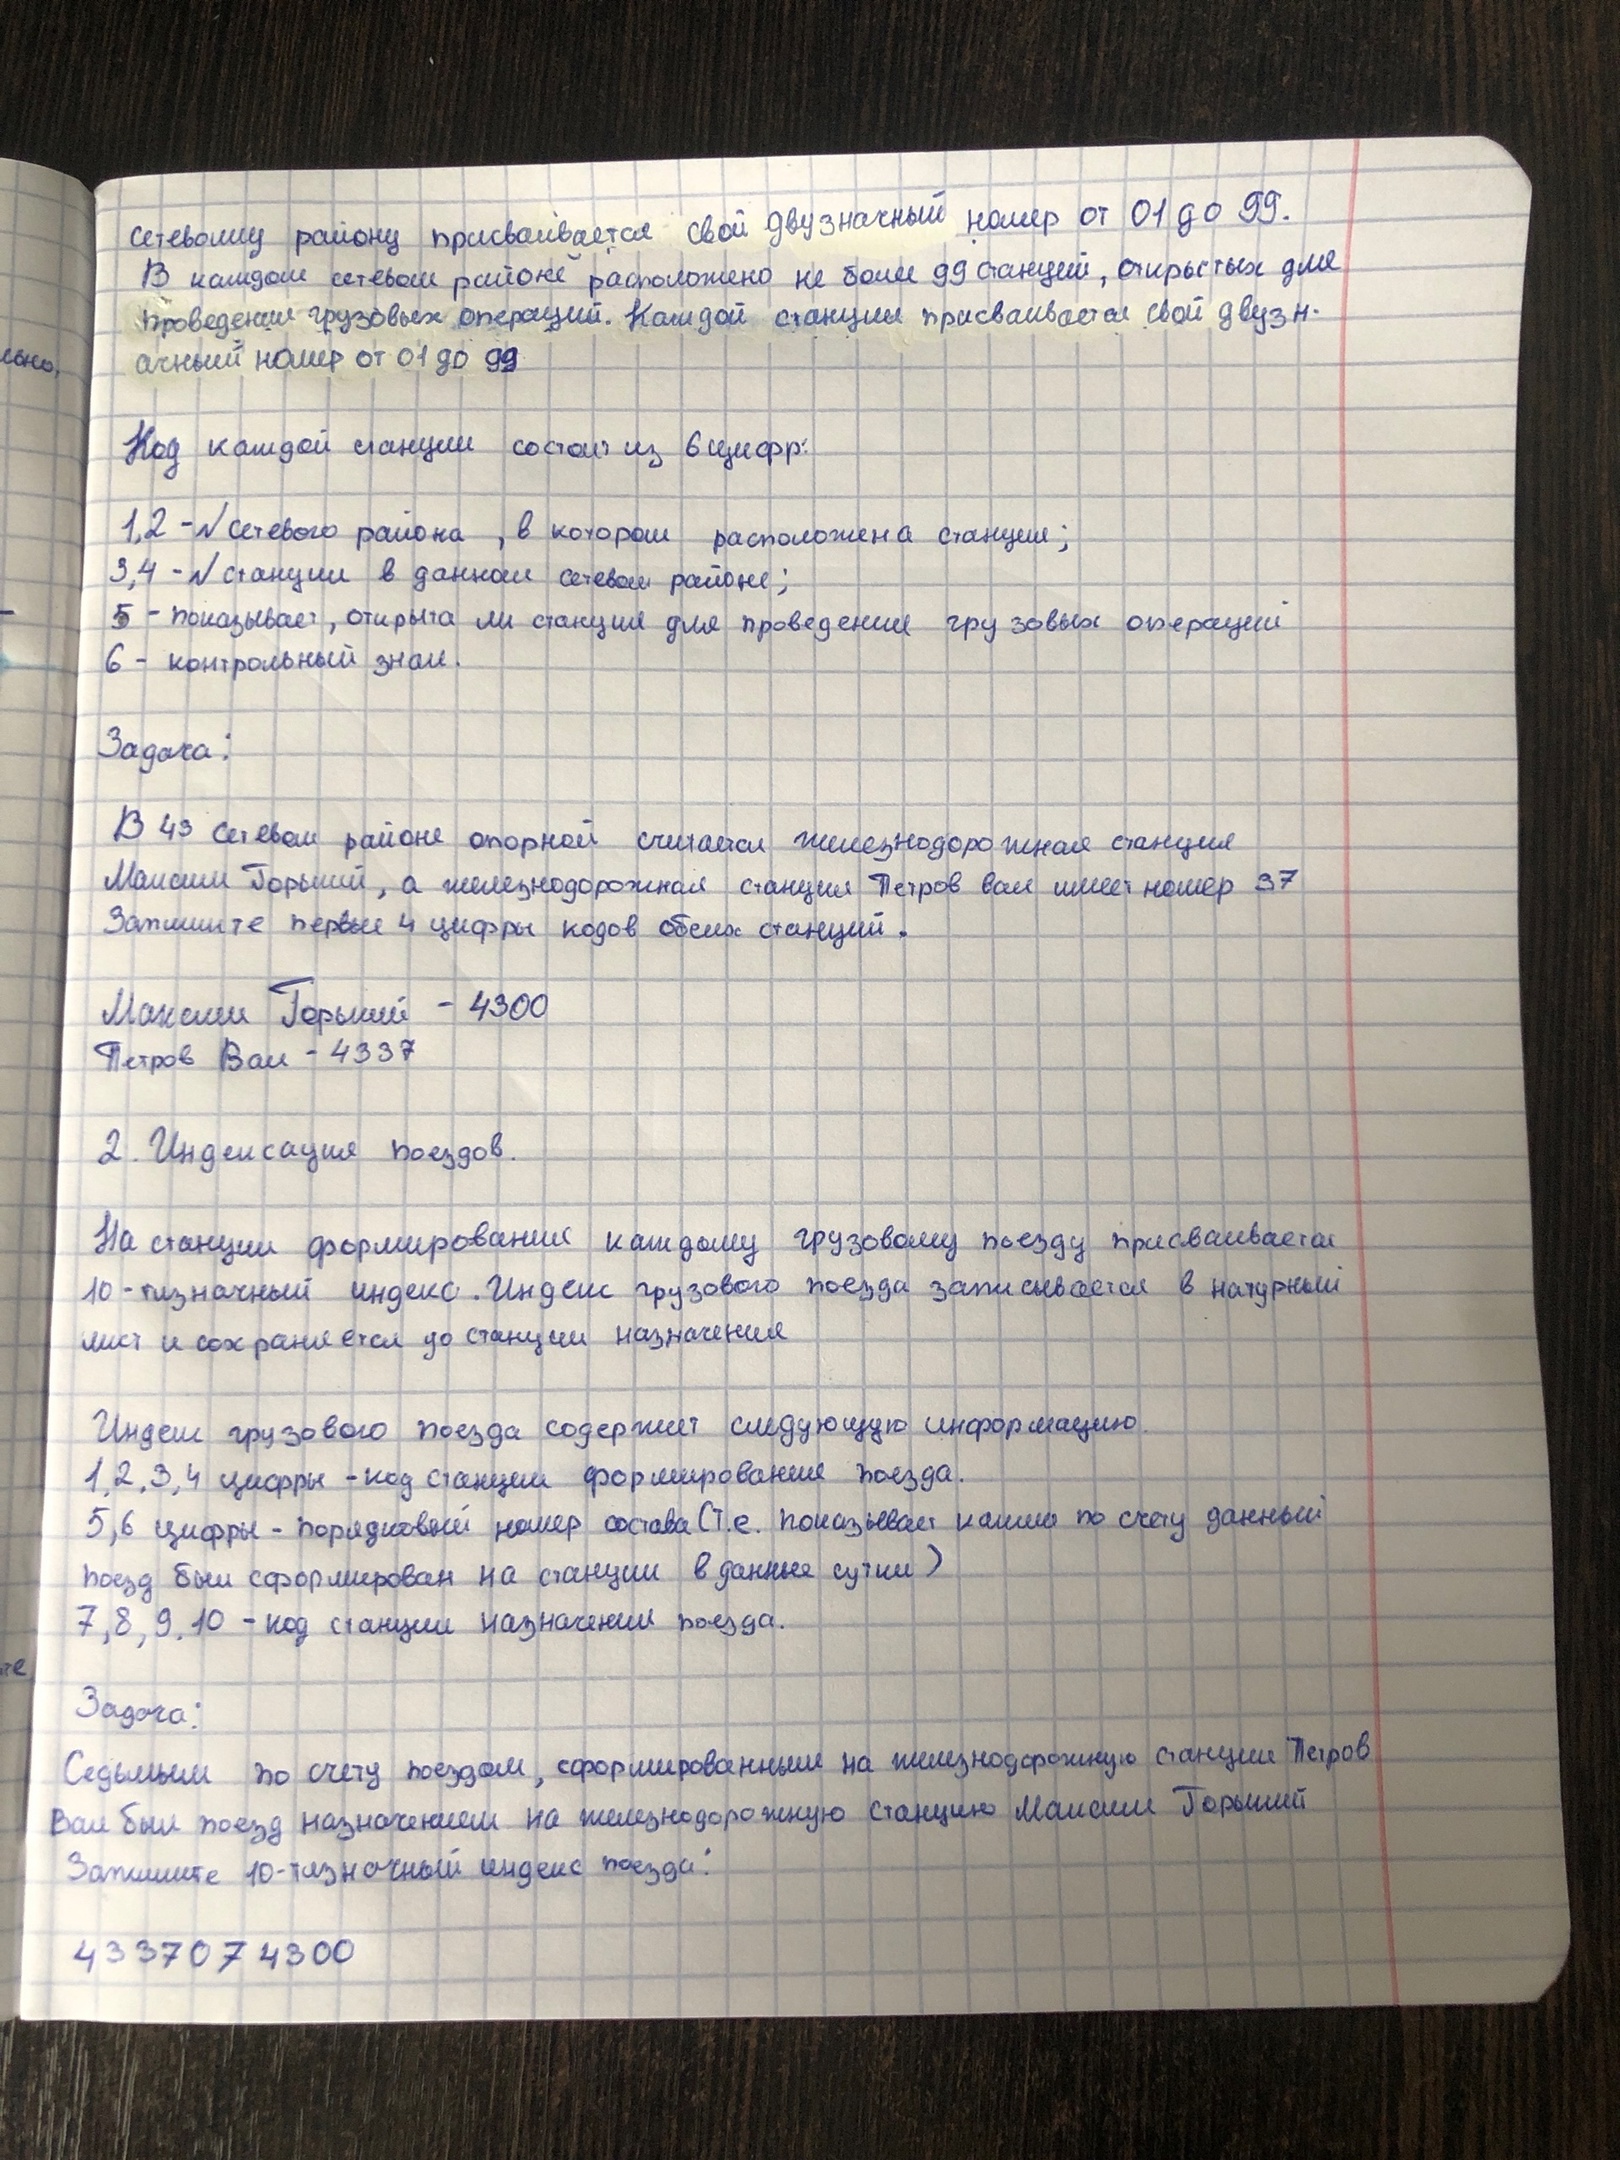 сетевому району присваивается свой двузначный номер от 01 до 99.
В каждом сетевом районе расположено не более 99 станций, открытых для
проведения грузовых операций. Каждой станции присваивается свой двузн-
ачный номер от 01 до 99
Код каждой станции состоит из 6 цифр:
1,2 - N сетевого района, в котором расположена станция;
3,4 - N станции в данном сетевом районе;
5 - показывает, открыта ли станция для проведения грузовых операций
6 - контрольный знак.
Задача:
В 43 сетевом районе опорной считается железнодорожная станция
Максим Горький, а железнодорожная станция Петров вал имеет номер 37
Запишите первые 4 цифры кодов обеих станций.
Максим Горький - 4300
Петров Вал - 4337
2. Индексация поездов.
На станции формирования каждому грузовому поезду присваивается
10-тизначный индекс. Индекс грузового поезда записывается в натурный
лист и сохраняется до станции назначения
Индекс грузового поезда содержит следующую информацию.
1,2,3,4 цифры - код станции формирования поезда.
5,6 цифры - порядковый номер состава (т.е. показывает каким по счету данный
поезд был сформирован на станции в данные сутки)
7,8,9,10 - код станции назначения поезда.
Задача:
Седьмым по счету поездом, сформированным на железнодорожную станции Петров
Вал был поезд назначением на железнодорожную станцию Максим Горький
Запишите 10-тизначный индекс поезда:
4337074300
льно,
те